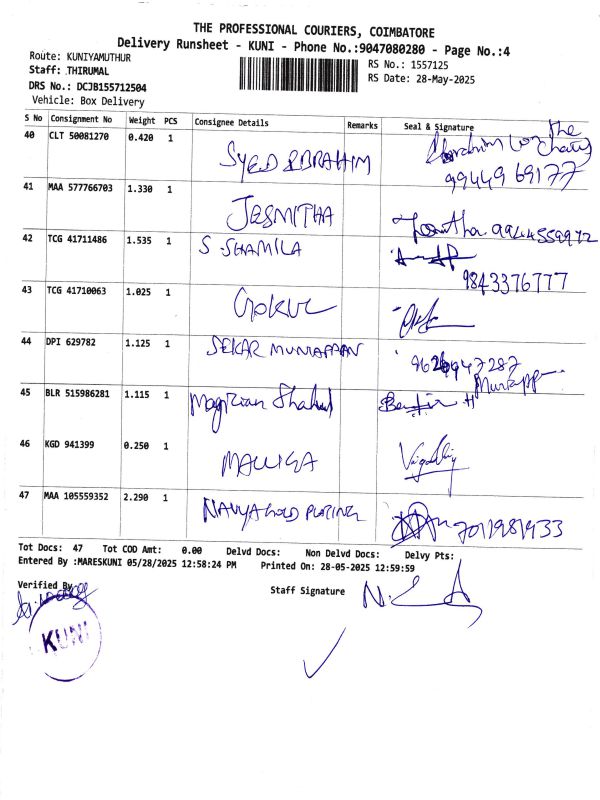 THE PROFESSIONAL COURIERS, COIMBATORE
Delivery Runsheet - KUNI - Phone No.:9047080280 - Page No.:4
Route: KUNIYAMUTHUR
Staff: THIRUMAL
DRS No.: DCJB155712504
Vehicle: Box Delivery
RS No.: 1557125
RS Date: 28-May-2025
S No Consignment No Weight PCS Consignee Details Remarks Seal & Signature
40 CLT 50081270 0.420 1 SYED IBRAHIM the
99449 69177
41 MAA 577766703 1.330 1 JESMITHA 9944559972
42 TCG 41711486 1.535 1 S. SHAMILA
9843376777
43 TCG 41710063 1.025 1 GOKUL
44 DPI 629782 1.125 1 SEKAR MUNIAPPAN
45 BLR 515986281 1.115 1
46 KGD 941399 0.250 1 MALLIGA
47 MAA 105559352 2.290 1 NAVYA GOLD PLATING 7011981933
Tot Docs: 47 Tot COD Amt: 0.00 Delvd Docs: Non Delvd Docs: Delvy Pts:
Entered By :MARESKUNI 05/28/2025 12:58:24 PM Printed On: 28-05-2025 12:59:59
Verified By
Staff Signature
KUNI